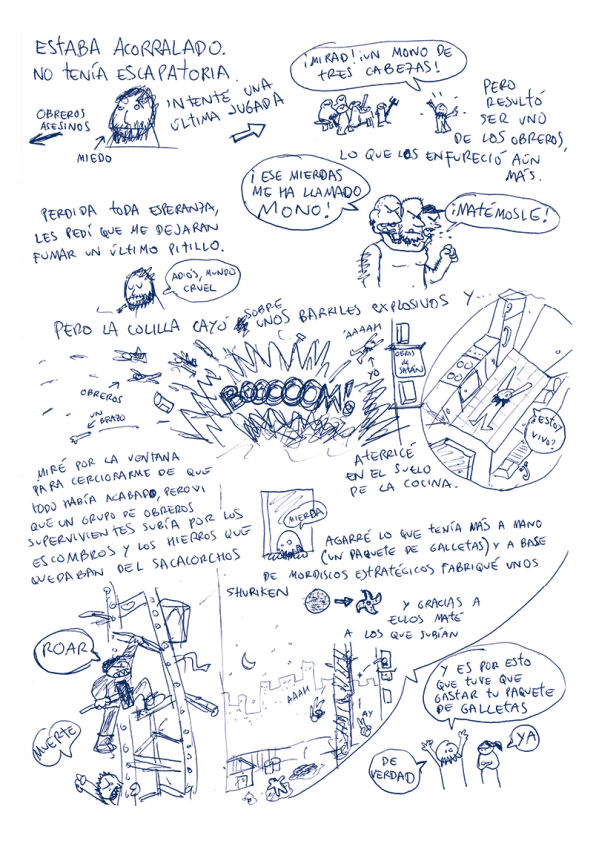 ESTABA ACORRALADO.
NO TENÍA ESCAPATORIA.
OBREROS
ASESINOS
MIEDO
INTENTÉ UNA
ÚLTIMA JUGADA
¡MIRAD! ¡UN MONO DE
TRES CABEZAS!
PERO
RESULTÓ
SER UNO
DE LOS OBREROS,
LO QUE LOS ENFURECIÓ AÚN
MÁS.
¡ESE MIERDAS
ME HA LLAMADO
MONO!
¡MATÉMOSLE!
PERDIDA TODA ESPERANZA,
LES PEDÍ QUE ME DEJARAN
FUMAR UN ÚLTIMO PITILLO.
ADIÓS, MUNDO
CRUEL
PERO LA COLILLA CAYÓ SOBRE UNOS BARRILES EXPLOSIVOS Y...
OBREROS
UN
BRAZO
BOOOOOOM!
AAAAH
YO
OBRAS
DE
SATÁN
¿ESTOY
VIVO?
ATERRICÉ
EN EL SUELO
DE LA COCINA.
MIRÉ POR LA VENTANA
PARA CERCIORARME DE QUE
TODO HABÍA ACABADO, PERO VI
QUE UN GRUPO DE OBREROS
SUPERVIVIENTES SUBÍA POR LOS
ESCOMBROS Y LOS HIERROS QUE
QUEDABAN DEL SACACORCHOS
MIERDA
AGARRÉ LO QUE TENÍA MÁS A MANO
(UN PAQUETE DE GALLETAS) Y A BASE
DE MORDISCOS ESTRATÉGICOS FABRIQUÉ UNOS
SHURIKEN
Y GRACIAS A
ELLOS MATÉ
A LOS QUE SUBÍAN
ROAR
MUERTE
AAAH
AY
Y ES POR ESTO
QUE TUVE QUE
GASTAR TU PAQUETE
DE GALLETAS
DE
VERDAD
YA